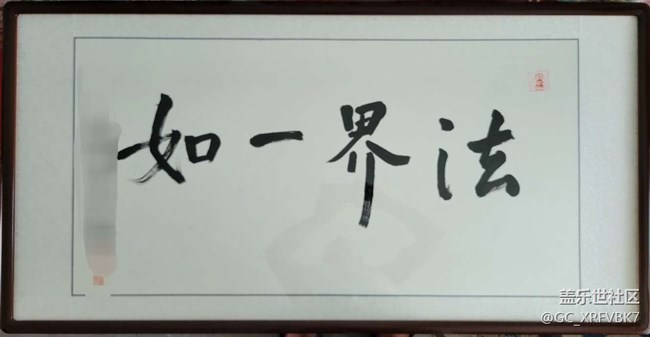 法界一如
盖乐世社区
@GC_XRFVBK7